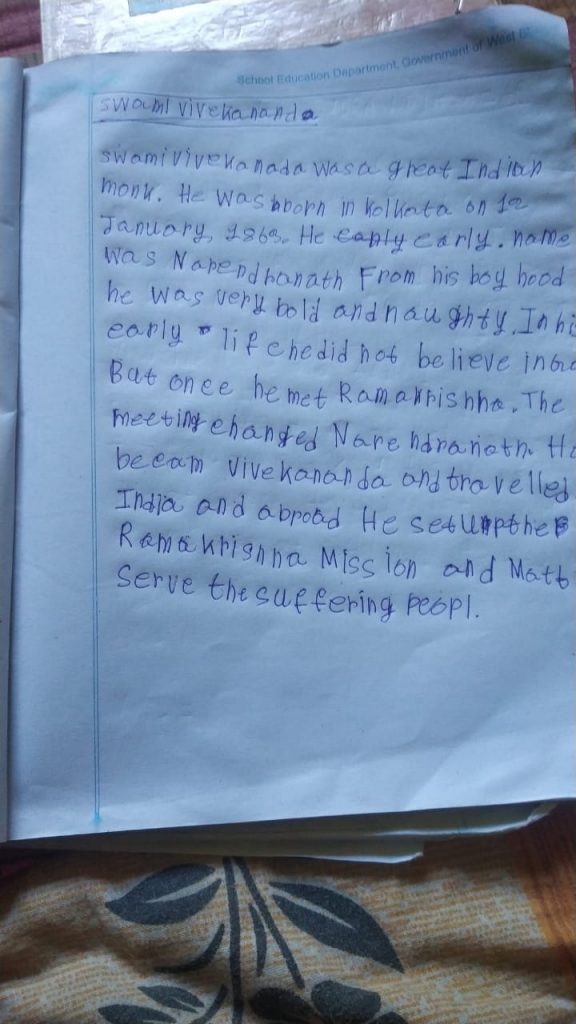 School Education Department, Government of West
swami vivekananda
swamivivekanada wasa great Indian
monk. He was bborn in kolkata on 12
January, 1863. He early. name
was Narendranath From his boy hood
he was very bold and naughty. In hi
early life hedid not believe in
But once he met Ramakrishna. The
meeting changed Narendranath. H
becam vivekananda and travelled
India and abroad He setupthe
Ramakrishna Mission and Matt
serve the suffering peopl.